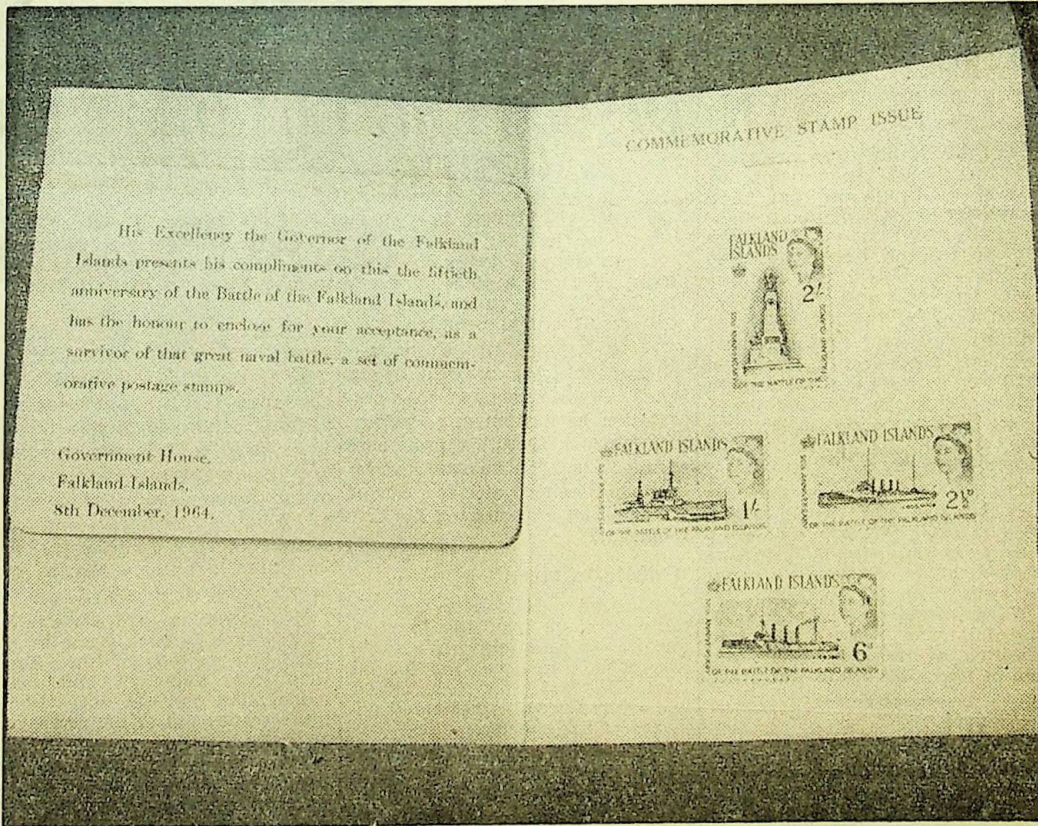 His Excellency the Governor of the Falkland
Islands presents his compliments on this the fiftieth
anniversary of the Battle of the Falkland Islands, and
has the honour to enclose for your acceptance, as a
survivor of that great naval battle, a set of commem-
orative postage stamps.
Government House,
Falkland Islands,
8th December, 1964.
COMMEMORATIVE STAMP ISSUE
FALKLAND
ISLANDS
2/-
OF THE BATTLE OF THE
FALKLAND ISLANDS
FALKLAND ISLANDS
1/-
OF THE BATTLE OF THE FALKLAND ISLANDS
FALKLAND ISLANDS
2½D
OF THE BATTLE OF THE FALKLAND ISLANDS
FALKLAND ISLANDS
6D
OF THE BATTLE OF THE FALKLAND ISLANDS